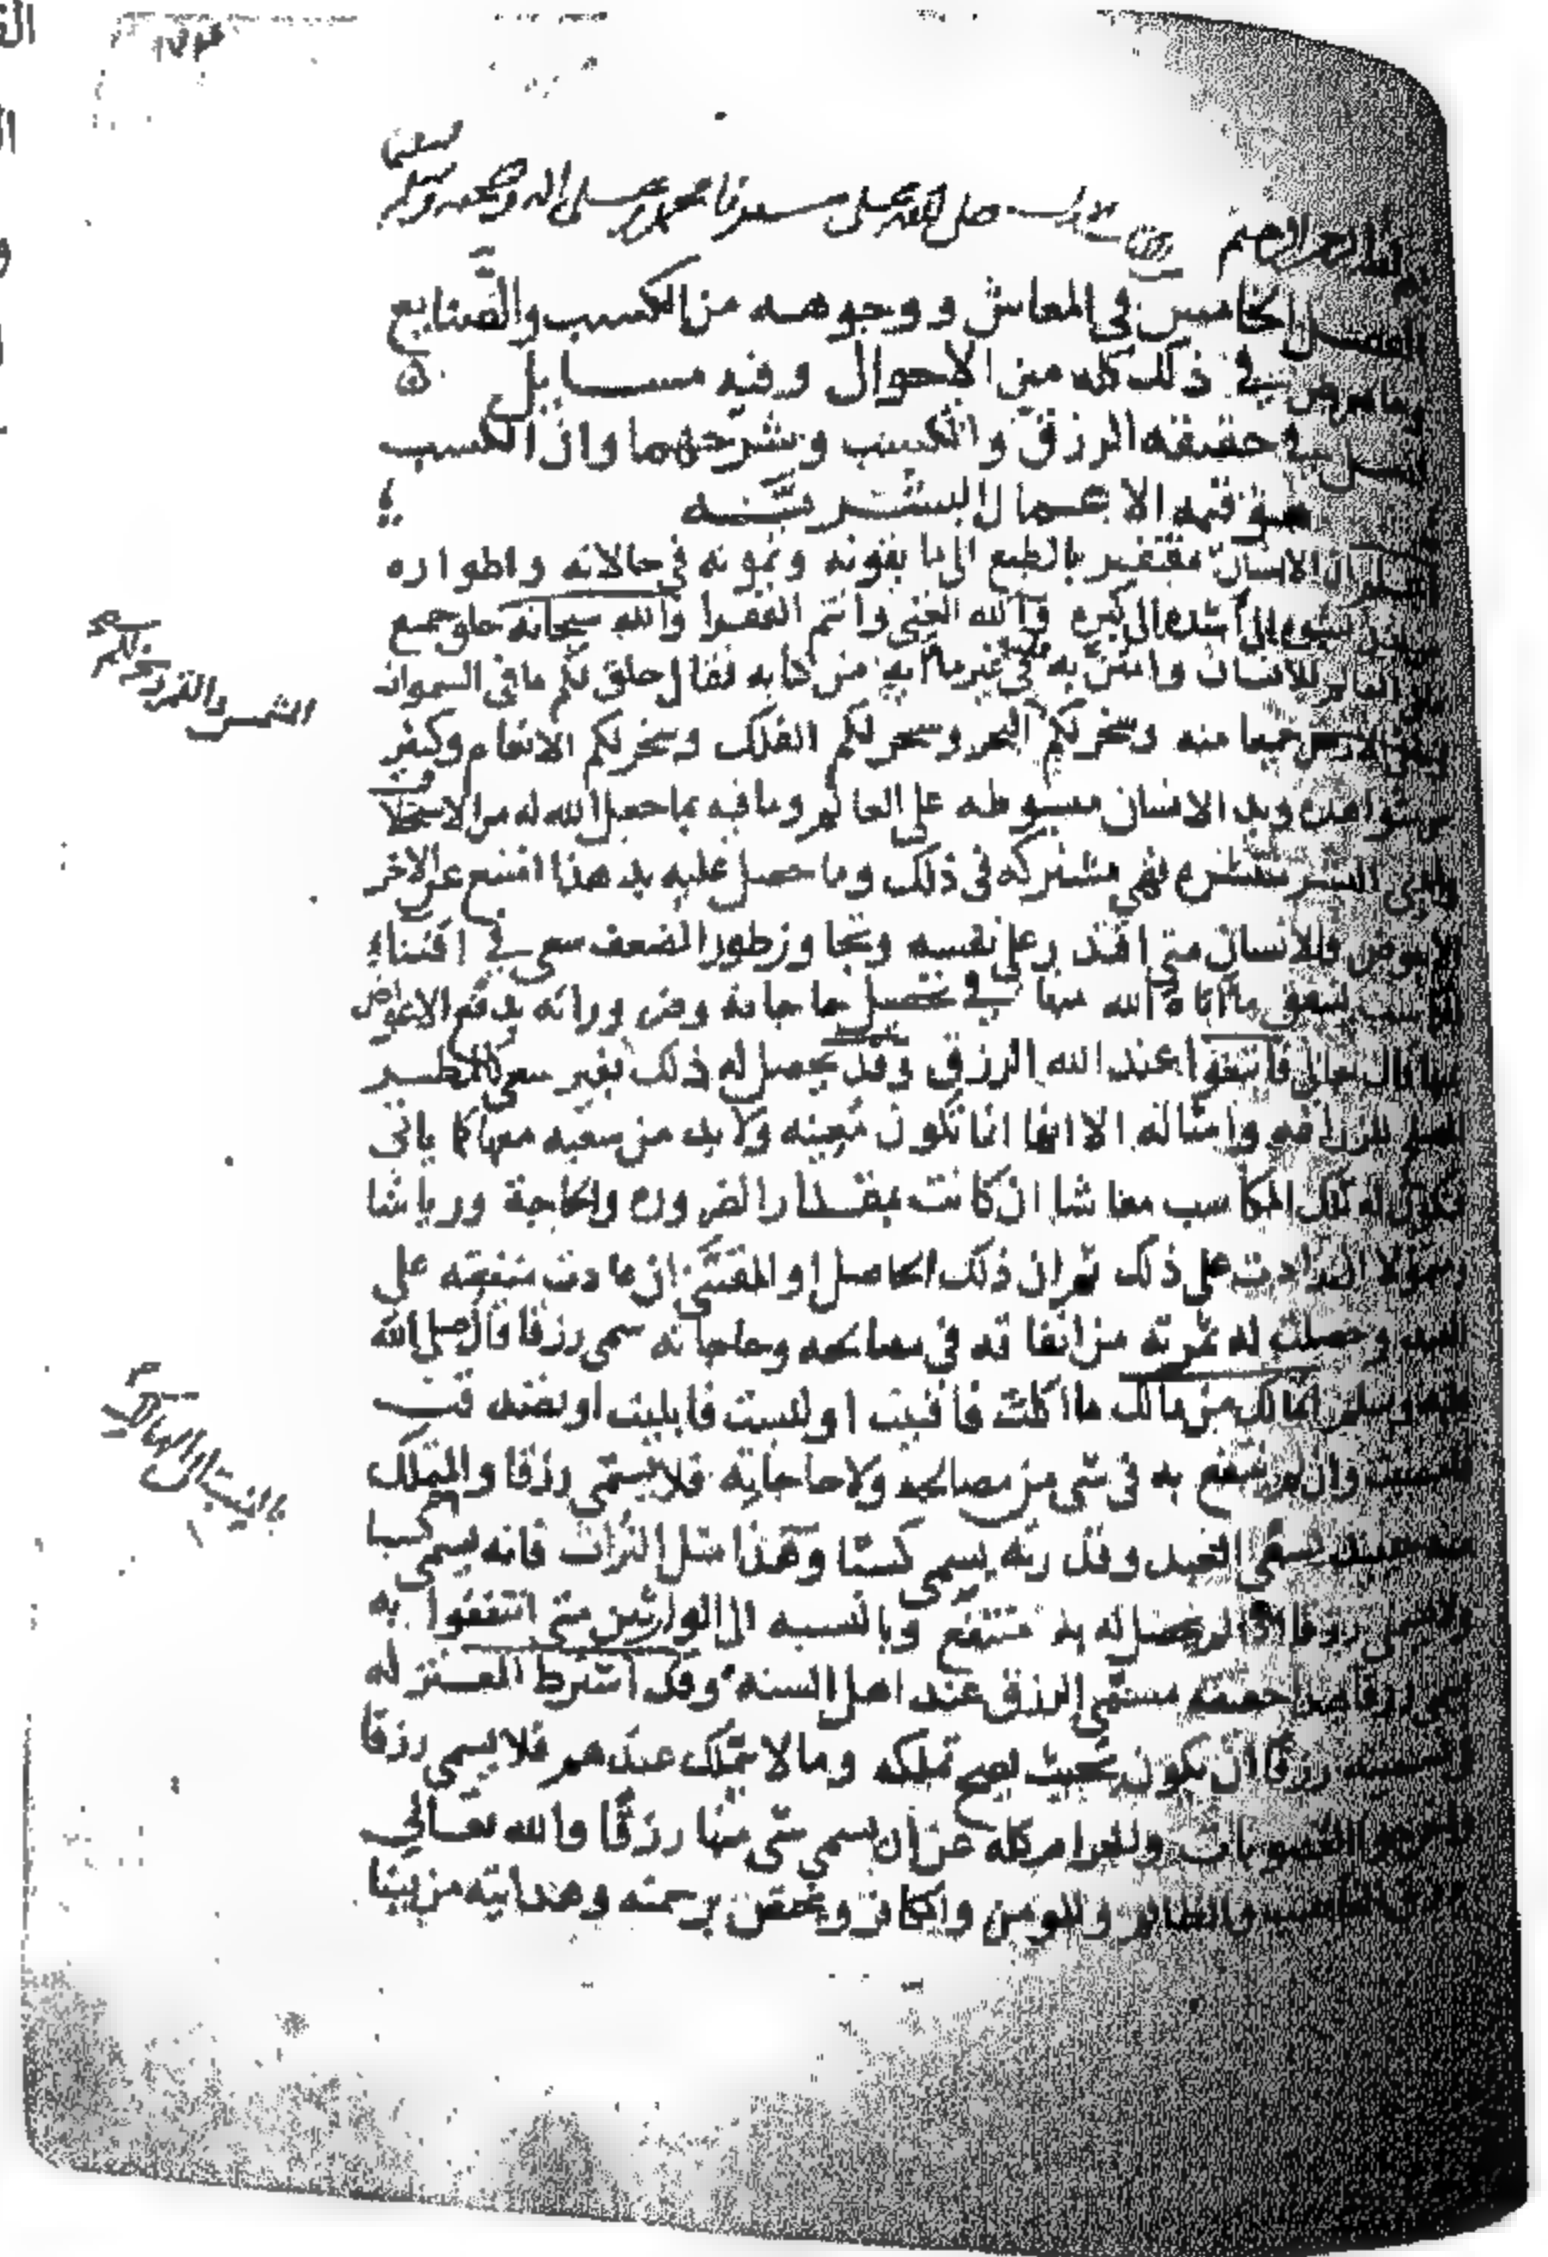 الله الرحمن الرحيم صلى الله على سيدنا محمد وعلى اله وصحبه وسلم تسليما
الفصل الخامس في المعاش ووجوهه من الكسب والصنايع
وما يعرض في ذلك كله من الاحوال وفيه مسايل
فصل في حقيقه الرزق والكسب وشرحهما وان الكسب
هو قيمه الاعمال البشريه
اعلم ان الانسان مفتقر بالطبع الى ما يقوته ويمونه في حالاته واطواره
من لدن نشوه الى اشده الى كبره والله الغني وانتم الفقرا والله سبحانه خلق جميع
ما في العالم للانسان وامتن به عليه في غير ما ايه من كتابه فقال خلق لكم ما في السموات
وما في الارض جميعا منه وسخر لكم البحر وسخر لكم الفلك وسخر لكم الانعام وكثير
من شواهده ويد الانسان مبسوطه على العالم وما فيه بما جعل الله له من الاستخلاف
وايدي البشر منتشره فهي مشتركه في ذلك وما حصل عليه يد هذا امتنع عن الاخر
الا بعوض فالانسان متى اقتدر على نفسه وتجاوز طور الضعف سعى في اقتناء
المكاسب لينفق ما اتاه الله منها في تحصيل حاجاته وضروراته بدفع الاعواض
عنها قال تعالى فابتغوا عند الله الرزق وقد يحصل له ذلك بغير سعي كالمطر
المصلح للزراعه وامثاله الا انها انما تكون معينه ولا بد من سعيه معها كما ياتي
فتكون له تلك المكاسب معاشا ان كانت بمقدار الضروره والحاجة ورياشا
ومتمولا ان زادت على ذلك ثم ان ذلك الحاصل او المقتنى ان عادت منفعته على
العبد وحصلت له ثمرته من انفاقه في مصالحه وحاجاته سمي رزقا قال صلى الله
عليه وسلم انما لك من مالك ما اكلت فافنيت او لبست فابليت او تصدقت
فامضيت وان لم ينتفع به في شي من مصالحه ولا حاجاته فلا يسمى رزقا والمتملك
منه حينئذ بسعي العبد وقدرته يسمى كسبا وهذا مثل التراث فانه يسمى كسبا
ولا يسمى رزقا اذ لم يحصل له به منتفع وبالنسبه الى الوارثين متى انتفعوا به
يسمى رزقا هذا حقيقه مسمى الرزق عند اهل السنه وقد اشترط المعتزله
في تسميته رزقا ان يكون بحيث يصح تملكه وما لا يتملك عندهم فلا يسمى رزقا
واخرجوا الغصوبات والحرام كله عن ان يسمى شي منها رزقا والله تعالى
يرزق الغاصب والظالم والمومن والكافر ويختص برحمته وهدايته من يشا
الشمس والقمر وسخر لكم
بالنسبة الى الهالك